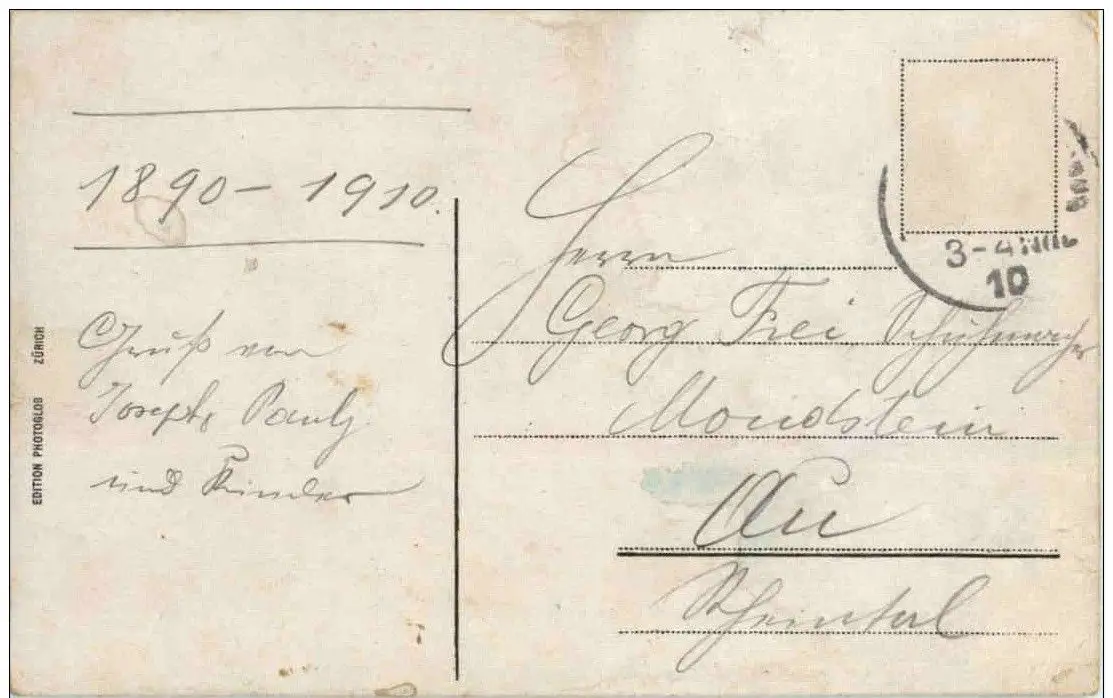 1890 – 1910.
Gruß von
Joseph, Pauly
und Kinder
EDITION PHOTOGLOB ZÜRICH
3-4
10
Herrn
Georg Frei
Mondstein
Au
Rheintal